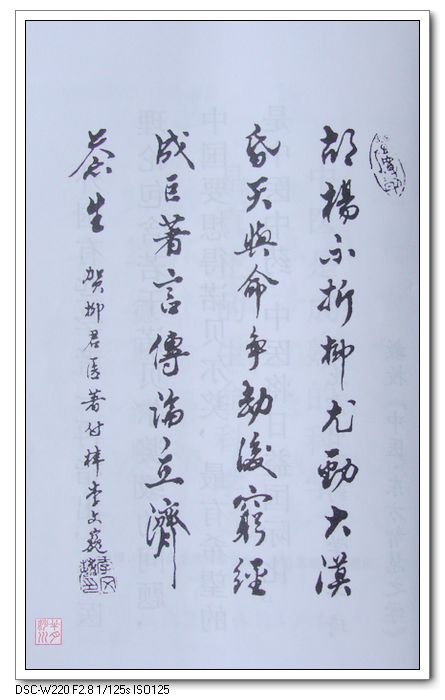 胡楊不折柳尤勁大漠
昏天與命争劫後窮經
成巨著言傳論立濟
蒼生
賀柳君醫著付梓李文
DSC-W220 F2.8 1/125s ISO125